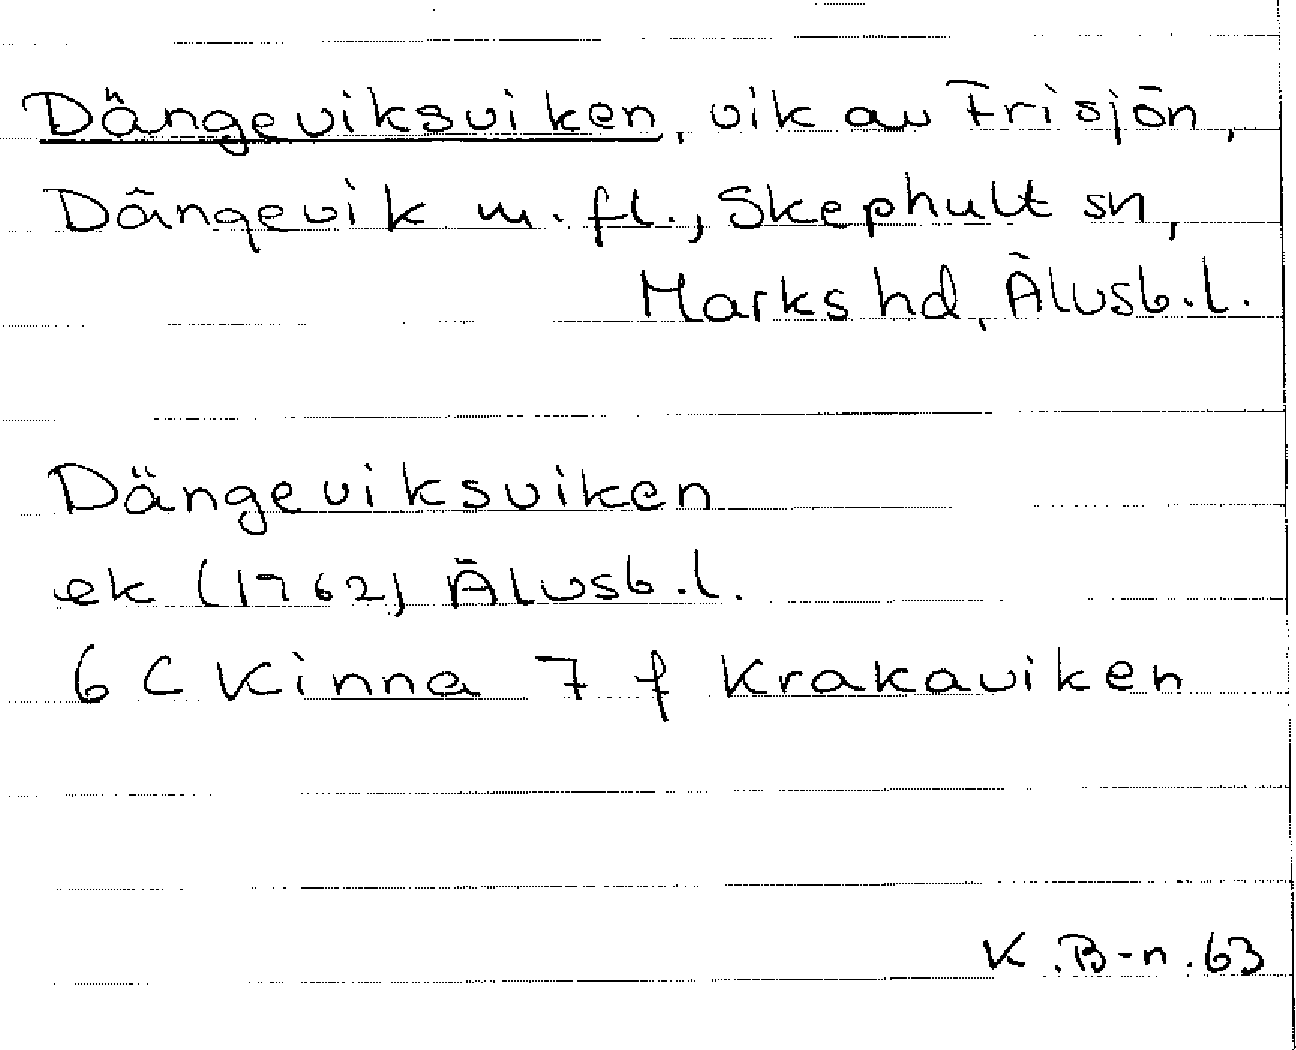 Dängeviksviken, vik av Frisjön,
Dängevik m.fl., Skephult sn,
Marks hd, Älvsb.l.
Dängeviksviken
ek (1762) Älvsb.l.
6 C Kinna 7 f Krakaviken
K.B-n.63